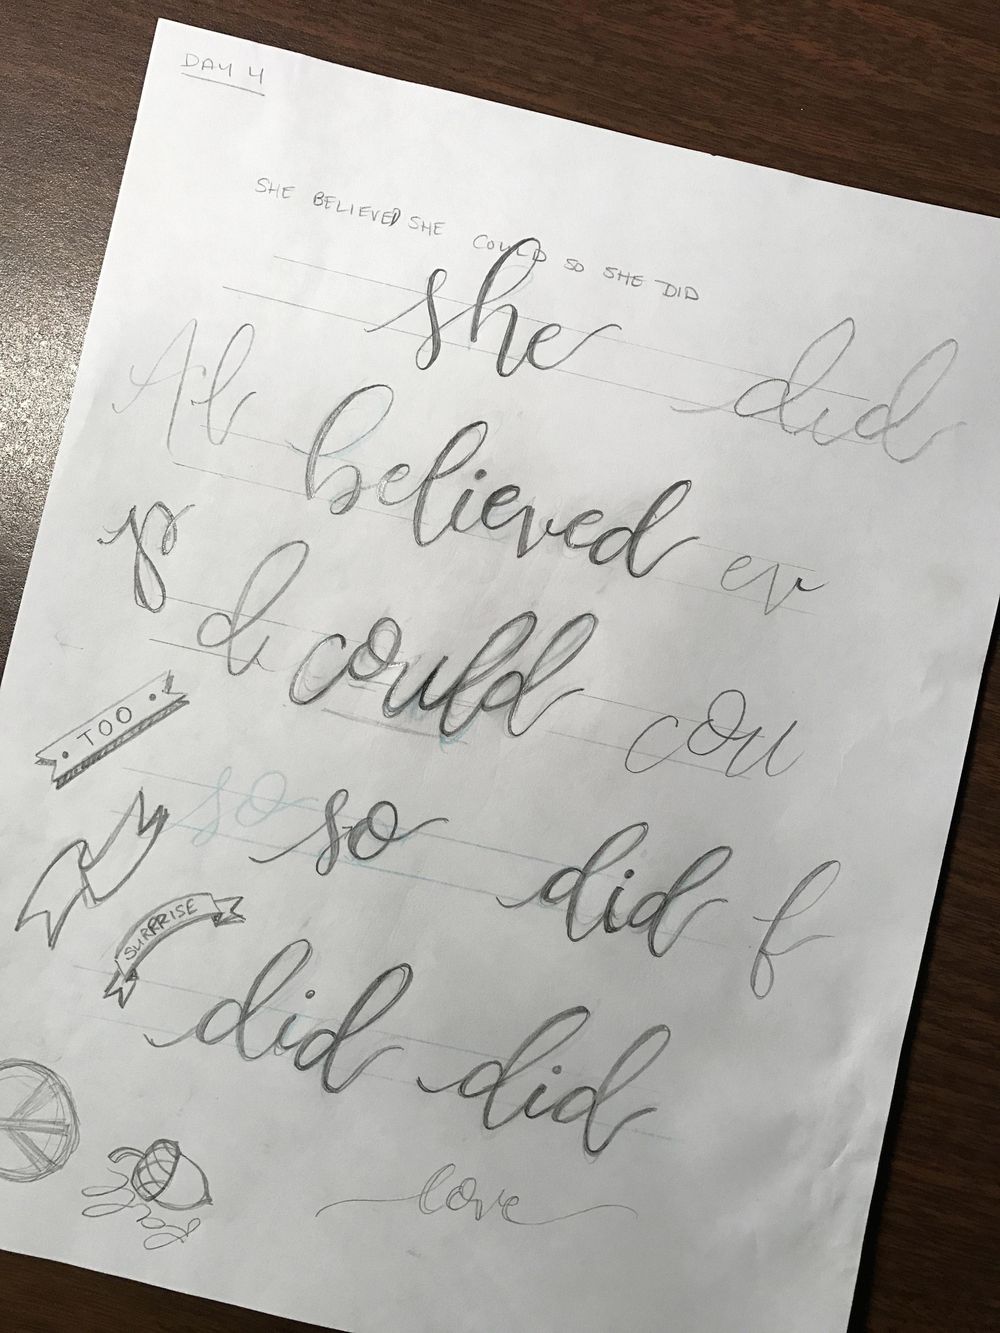 DAY 4
SHE BELIEVED SHE COULD SO SHE DID
she did
believed ev
d could cou
TOO
so so did f
SURRRISE
did did
fall
love